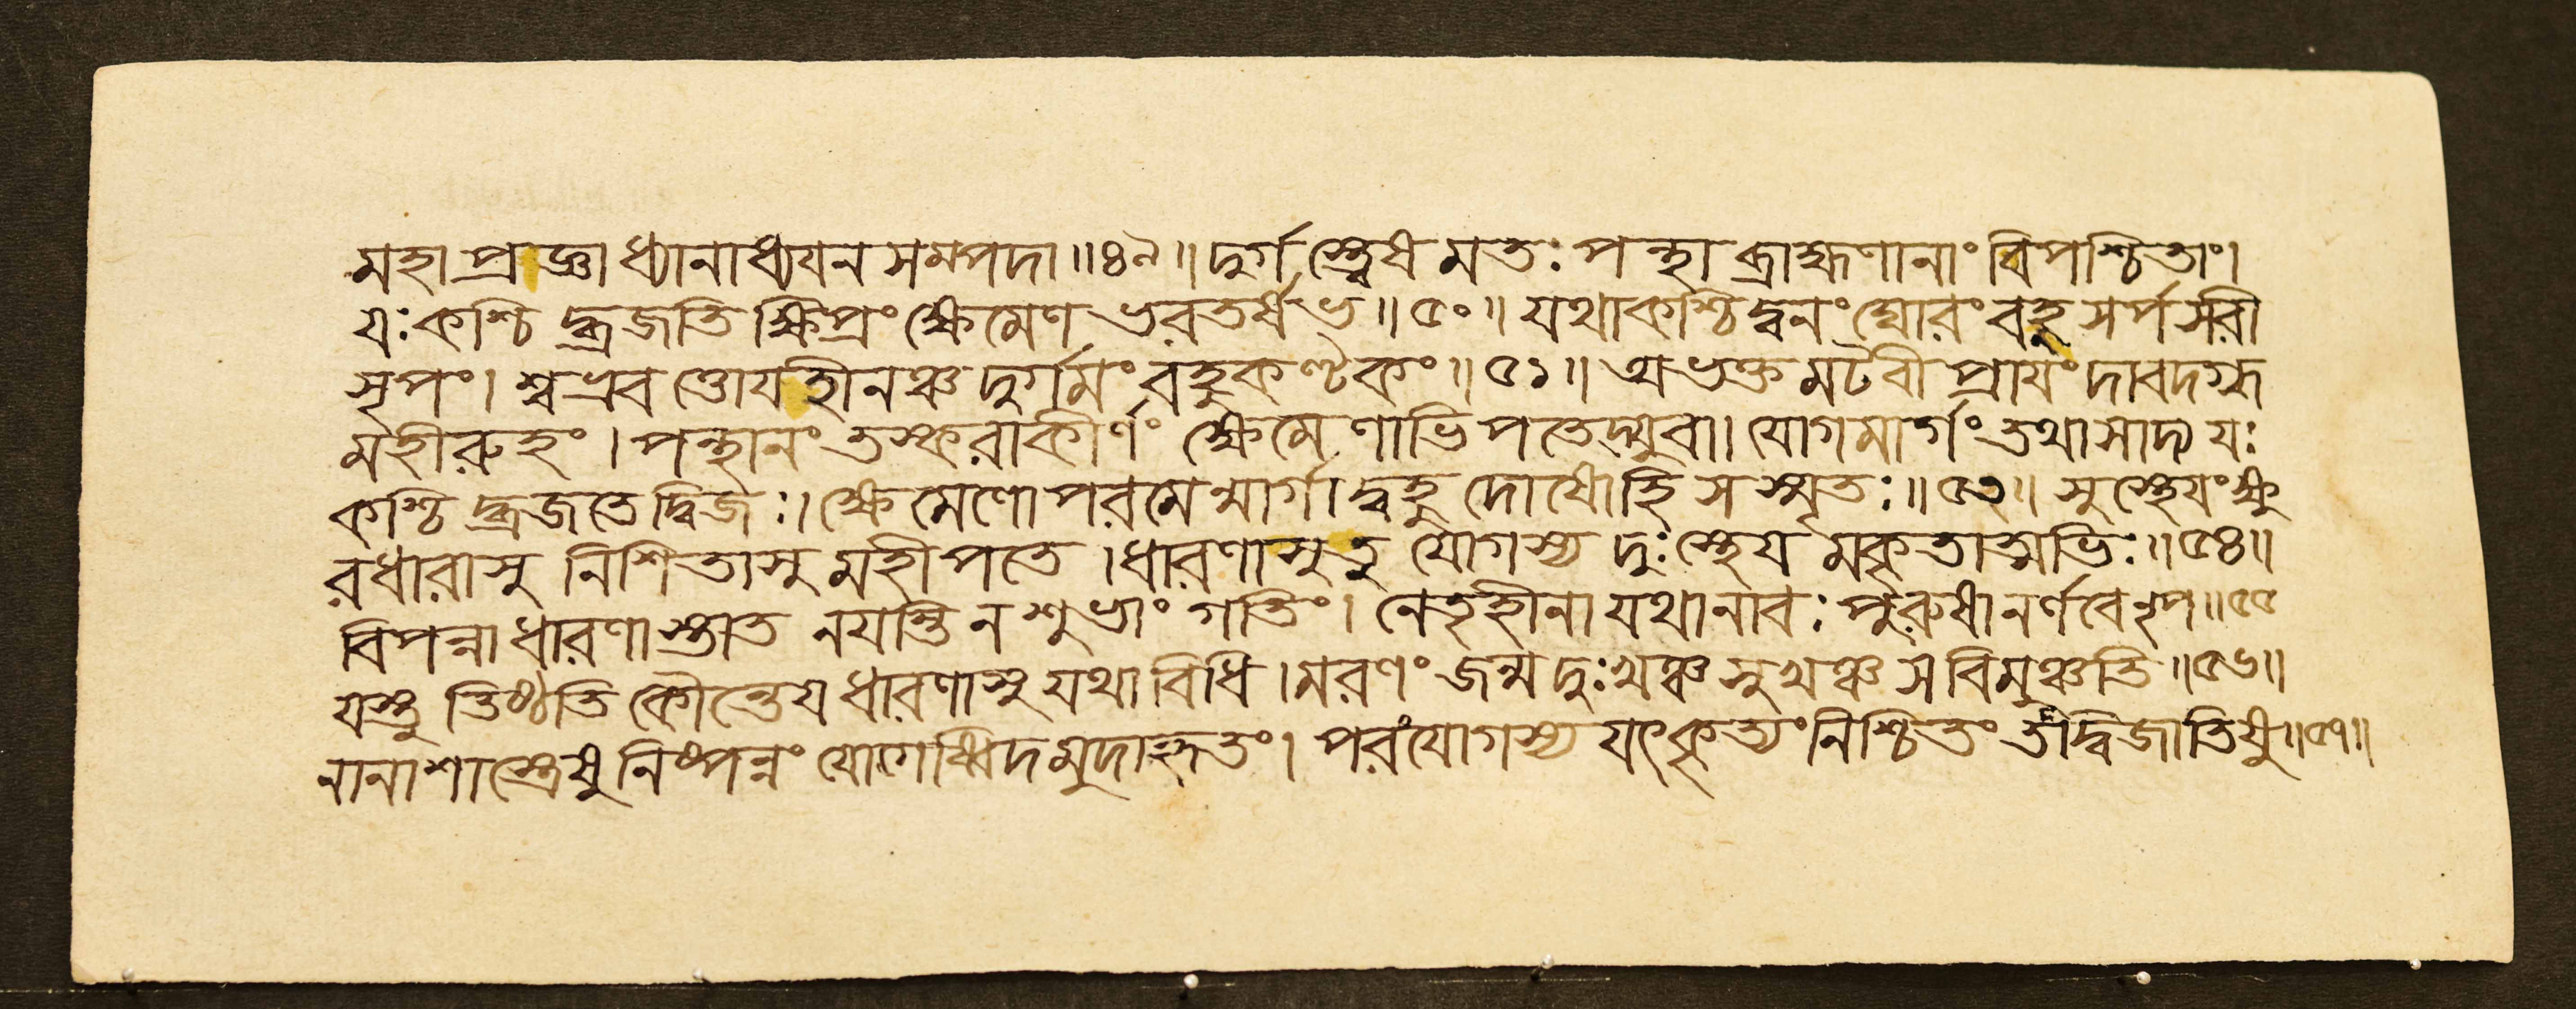 মহাপ্রাজ্ঞা ধ্যানাধ্যয়ন সম্পদা॥৪৯॥ দুর্গস্ত্বেষ মতঃ পন্থা ব্রাহ্মণানাং বিপশ্চিতাং।
যঃ কশ্চিদ্ব্রজতি ক্ষিপ্রং ক্ষেমেণ ভরতর্ষভ॥৫০॥ যথাকশ্চিদ্বনং ঘোরং বহু সর্প সরী
সৃপং। শ্বভ্রব ত্তোয়হীনঞ্চ দুর্গমং বহুকণ্টকং॥৫১॥ অভক্ত মটবী প্রায়ং দাবদগ্ধ
মহীরুহং। পন্থানং তস্করাকীর্ণং ক্ষেমেণাভিপতেদ্যুবা। যোগমার্গং তথাসাদ্য যঃ
কশ্চিদ্ব্রজতে দ্বিজঃ। ক্ষেমেণোপরমেন্মার্গাদ্বহুদোষোহি স স্মৃতঃ॥৫৩॥ সুস্থেয়ং ক্ষু
রধারাসু নিশিতাসু মহীপতে। ধারণাসুতু যোগস্য দুঃস্থেয় মকৃতাত্মভিঃ॥৫৪॥
বিপন্নাধারণাস্তাত নয়ন্তি ন শুভাং গতিং। নেতৃহীনা যথানাবঃ পুরুষানর্ণবে নৃপ॥৫৫
যস্তু তিষ্ঠতি কৌন্তেয় ধারণাসু যথাবিধি। মরণং জন্ম দুঃখঞ্চ সুখঞ্চ স বিমুঞ্চতি॥৫৬॥
নানাশাস্ত্রেষু নিষ্পন্নং যোগেষ্বিদমুদাহৃতং। পরং যোগস্য যৎকৃত্যং নিশ্চিতং তদ্দ্বিজাতিষু॥৫৭॥